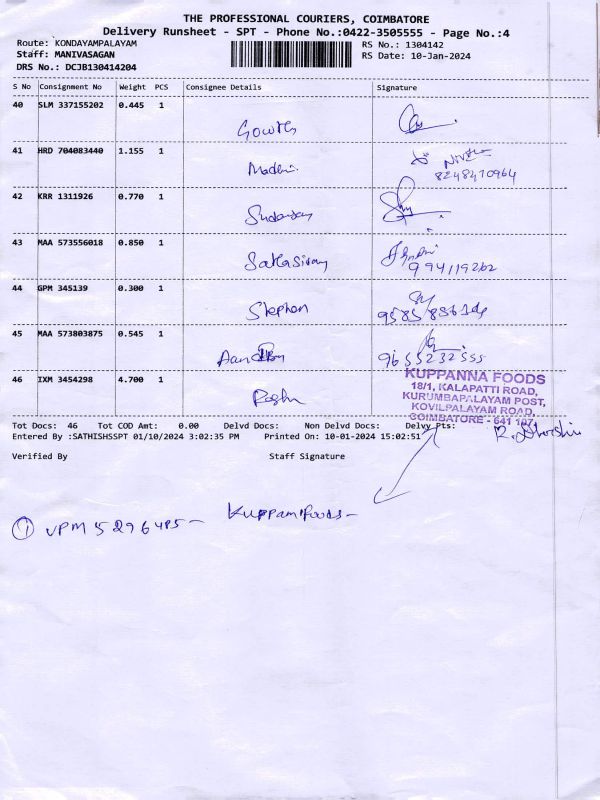 THE PROFESSIONAL COURIERS, COIMBATORE
Delivery Runsheet - SPT - Phone No.:0422-3505555 - Page No.:4
Route: KONDAYAMPALAYAM RS No.: 1304142
Staff: MANIVASAGAN RS Date: 10-Jan-2024
DRS No.: DCJB130414204
S No Consignment No Weight PCS Consignee Details Signature
40 SLM 337155202 0.445 1
Gowth
41 HRD 704083440 1.155 1
Madhi Nivetha
8248470964
42 KRR 1311926 0.770 1
Sudarsan
43 MAA 573556018 0.850 1
Sathasivam
9941119262
44 GPM 345139 0.300 1
Stephen
45 MAA 573803875 0.545 1
9655232555
46 IXM 3454298 4.700 1
Raghu
KUPPANNA FOODS
18/1, KALAPATTI ROAD,
KURUMBAPALAYAM POST,
KOVILPALAYAM ROAD,
COIMBATORE - 641 107
Tot Docs: 46 Tot COD Amt: 0.00 Delvd Docs: Non Delvd Docs: Delvy Pts:
Entered By :SATHISHSSPT 01/10/2024 3:02:35 PM Printed On: 10-01-2024 15:02:51
Verified By Staff Signature
① VPM 5296485 - Kuppam Foods -